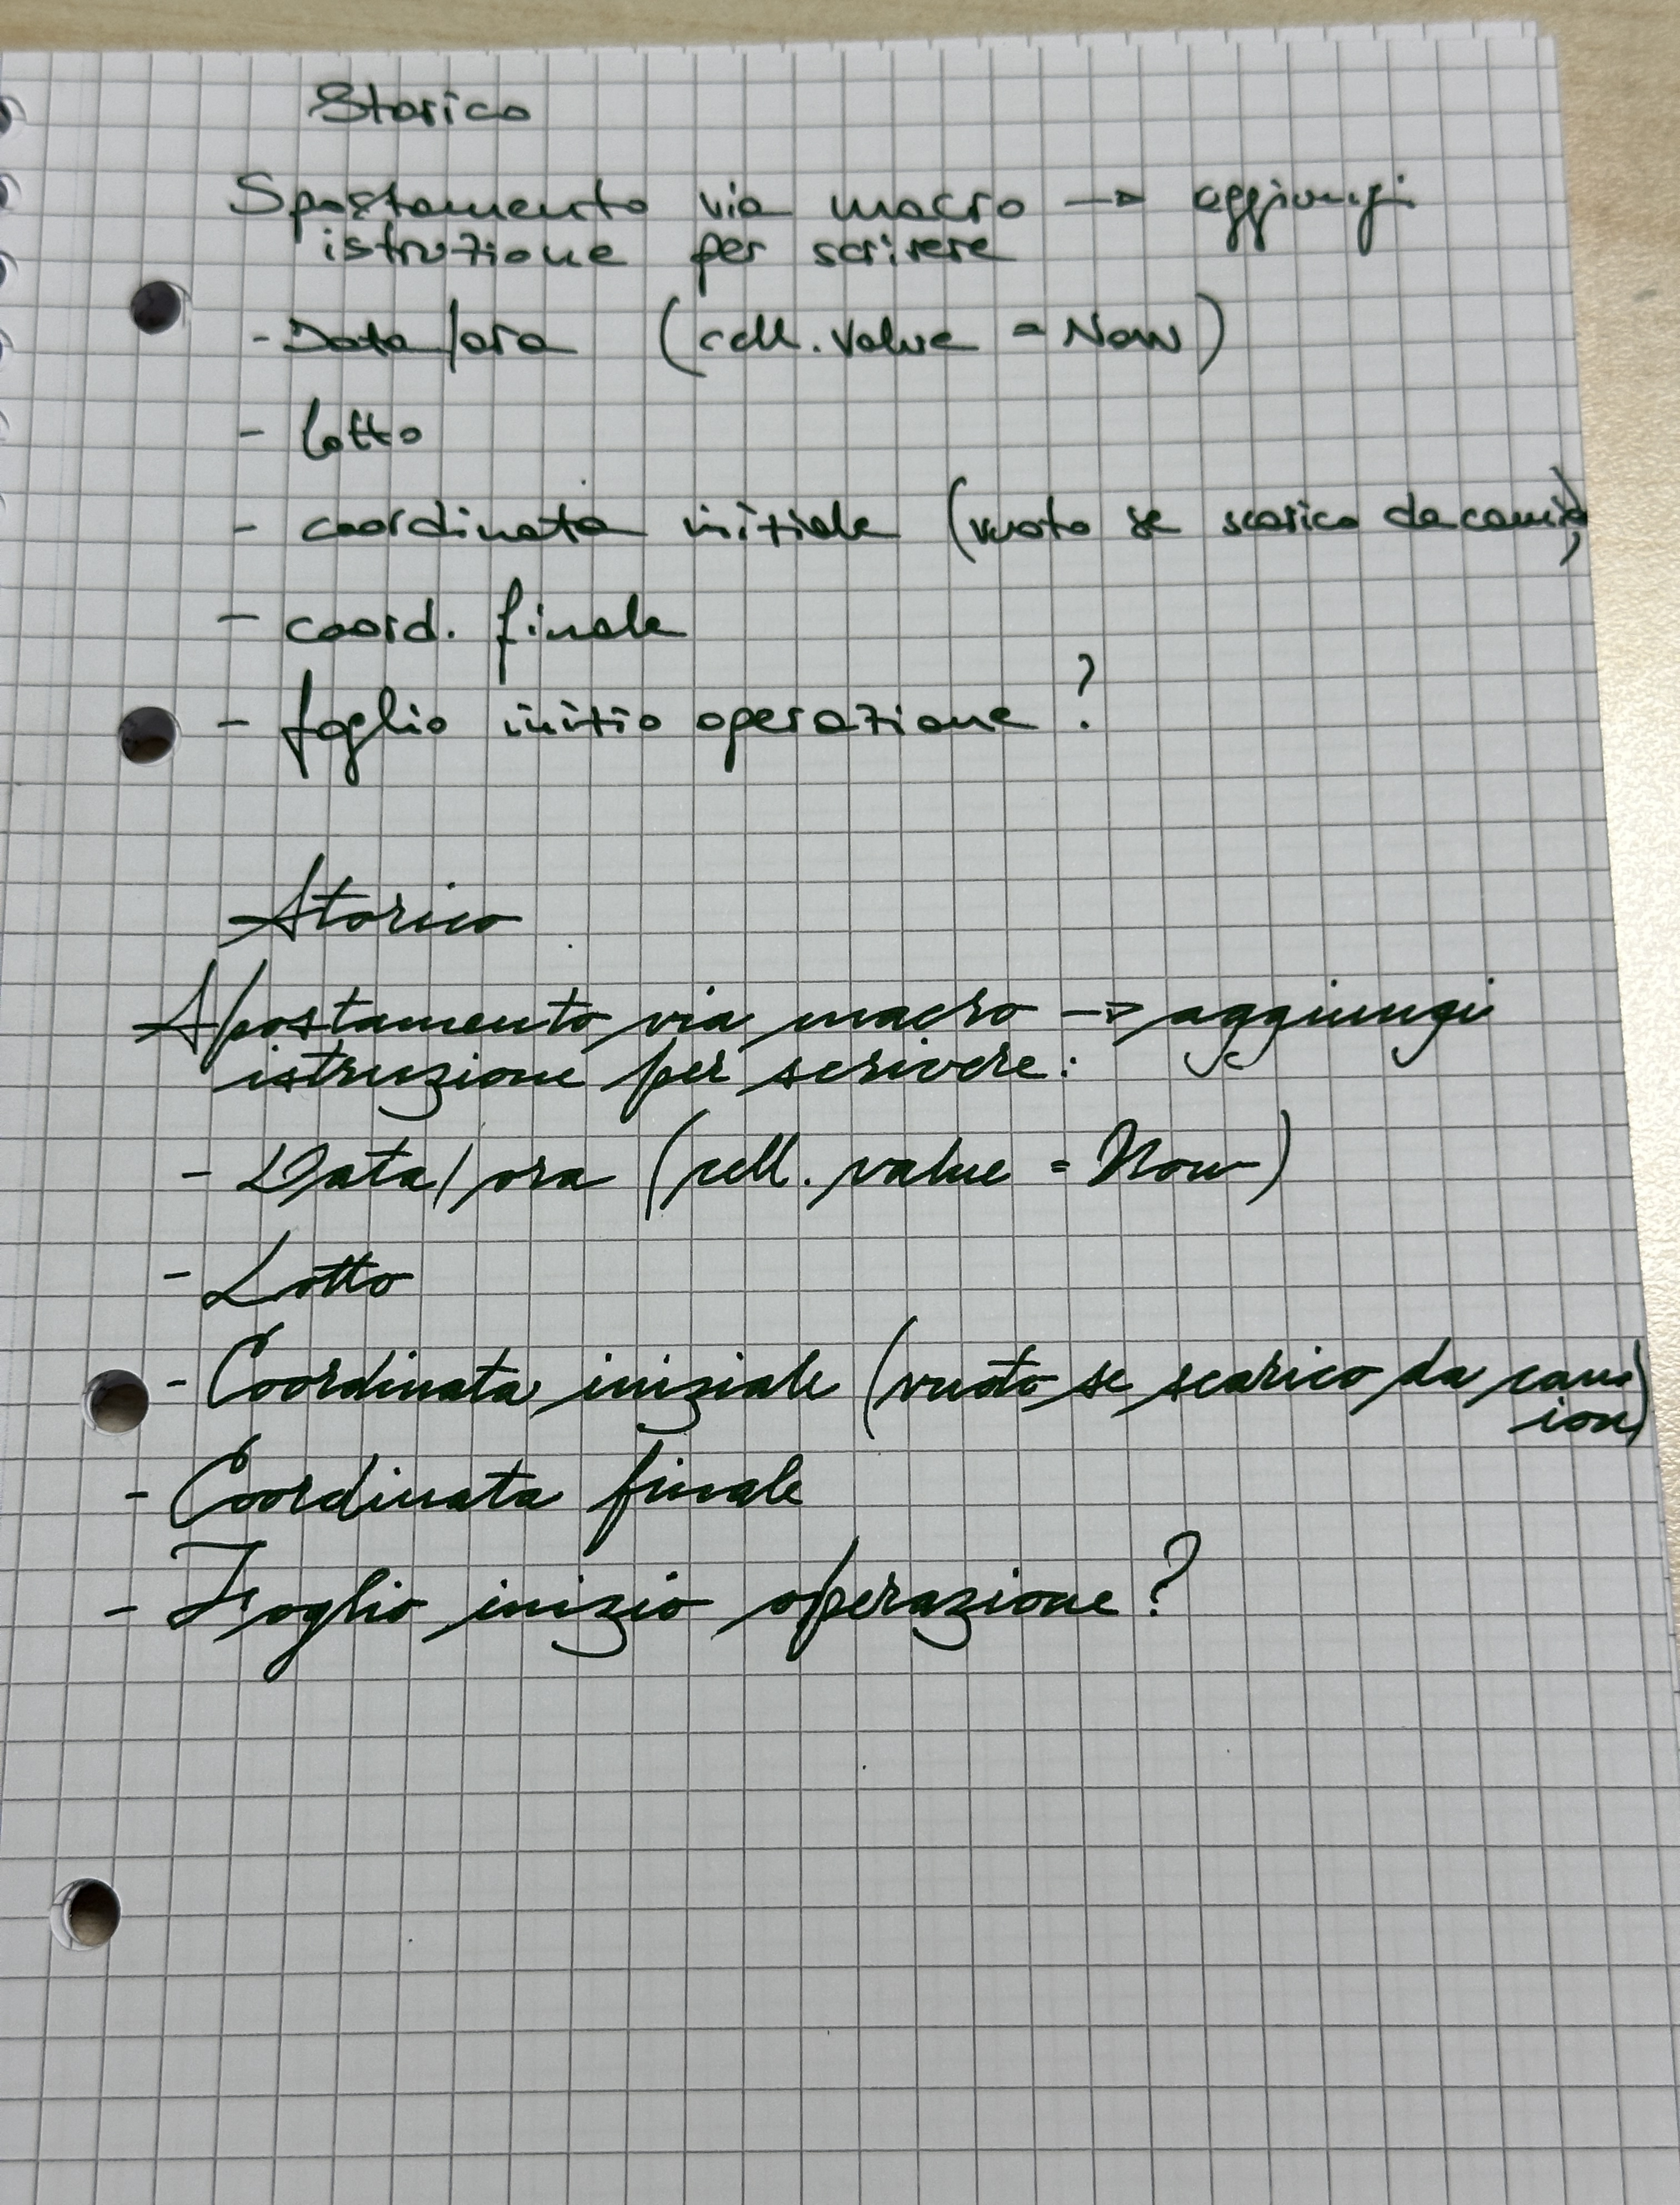 Storico
Spostamento via macro -> aggiungi
istruzione per scrivere
- Data/ora (cell.value = Now)
- lotto
- coordinata iniziale (vuoto se scarico da camion)
- coord. finale
- foglio inizio operazione ?
Storico
Spostamento via macro -> aggiungi
istruzione per scrivere:
- Data/ora (cell.value = Now)
- Lotto
- Coordinata iniziale (vuoto se scarico da cam
ion)
- Coordinata finale
- Foglio inizio operazione ?